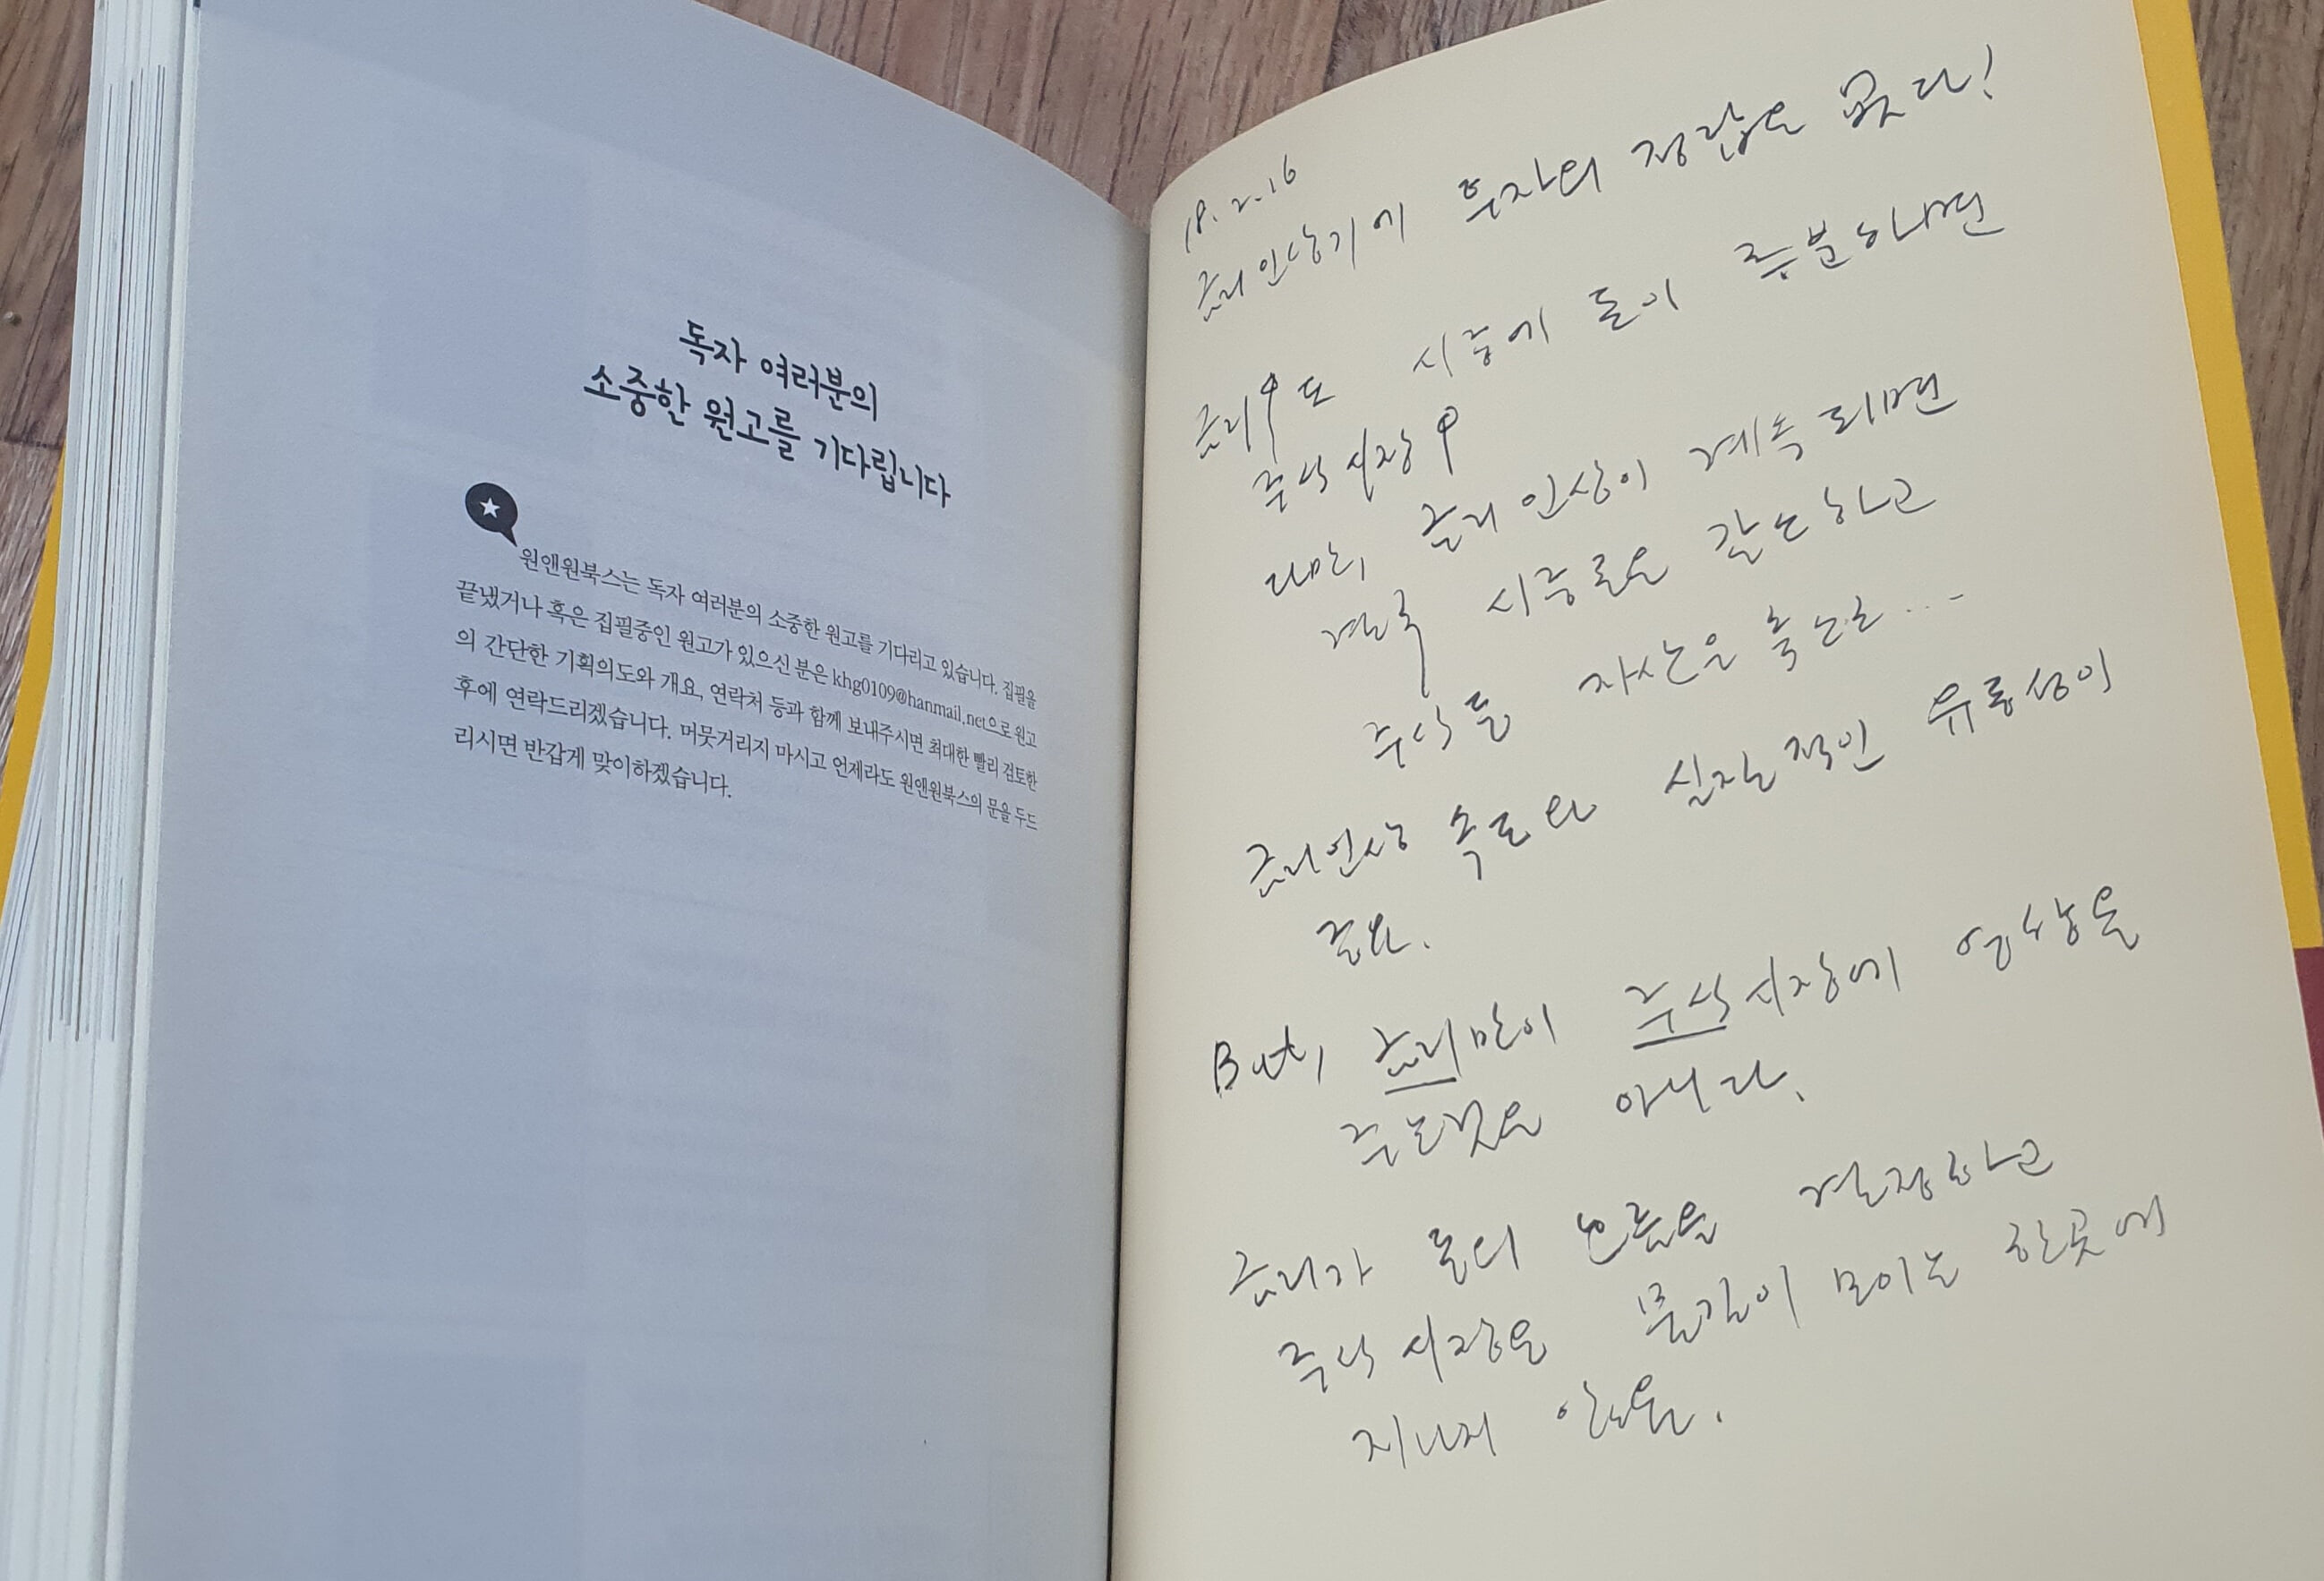 독자 여러분의
소중한 원고를 기다립니다
원앤원북스는 독자 여러분의 소중한 원고를 기다리고 있습니다. 집필을
끝냈거나 혹은 집필중인 원고가 있으신 분은 khg0109@hanmail.net으로 원고
의 간단한 기획의도와 개요, 연락처 등과 함께 보내주시면 최대한 빨리 검토한
후에 연락드리겠습니다. 머뭇거리지 마시고 언제라도 원앤원북스의 문을 두드
리시면 반갑게 맞이하겠습니다.
18. 2. 16
금리인상기에 투자의 정답은 없다!
금리↑도 시중에 돈이 충분하면
주식시장↑
다만, 금리인상이 계속되면
결국 시중로은 감소하고
주식등 자산은 축소로...
금리인상 속도와 실질적인 유동성이
중요.
But, 금리만이 주식시장에 영향을
주는것은 아니다.
금리가 돈의 흐름을 결정하고
주식시장은 물길이 모이는 한곳에
지나지 않음.